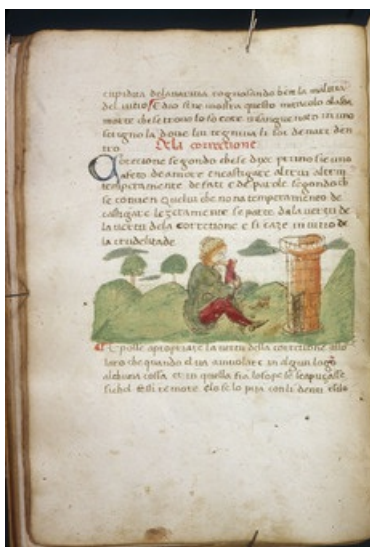 cupidita del avaritia cognosando ben la malitia
del vitio e dio si ne mostra questo miracolo alassa
morte che se trovo lo so core in sangue nato in uno
scrigno la dove lui tegniva li soi denari den
tro
Dela correctione
Corectione segondo che se dixe primo sie uno
afeto de amore encastigare altrui
temperamente de fati e de parole segondo ch
se convien quelui che non a temperamento de
castigare legeramente se parte dala vertu de
la vertu dela correctione e si caze in vitio de
la crudelitade
E polse apropriare la vertu della correctione allo
lovo che quando el va a involare in algun logo
alchuna cossa et in quella fia lo sope
si chel remore elo se lo pia con li denti e silo